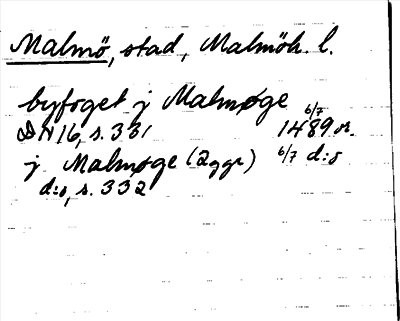 Malmö, stad, Malmöh. l.
byfoget j Malmøge 6/7
DN 16, s. 331 1489 or.
j Malmøge (2 ggr) 6/7 d:o
d:o, s. 332